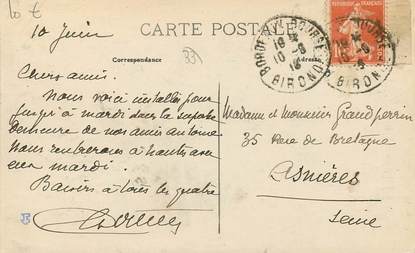 10 €
10 Juin
CARTE POSTALE
331
Correspondance
Adresse
BORDEAUX BOURSE
GIRONDE
Chers amis.
Nous voici installés pour
jusqu'à mardi dans la superbe
demeure de nos amis
Nous rentrerons à
mardi.
Baisers à tous les quatre
Madame et Monsieur Grandperrin
35 Rue de Bretagne
Asnières
Seine